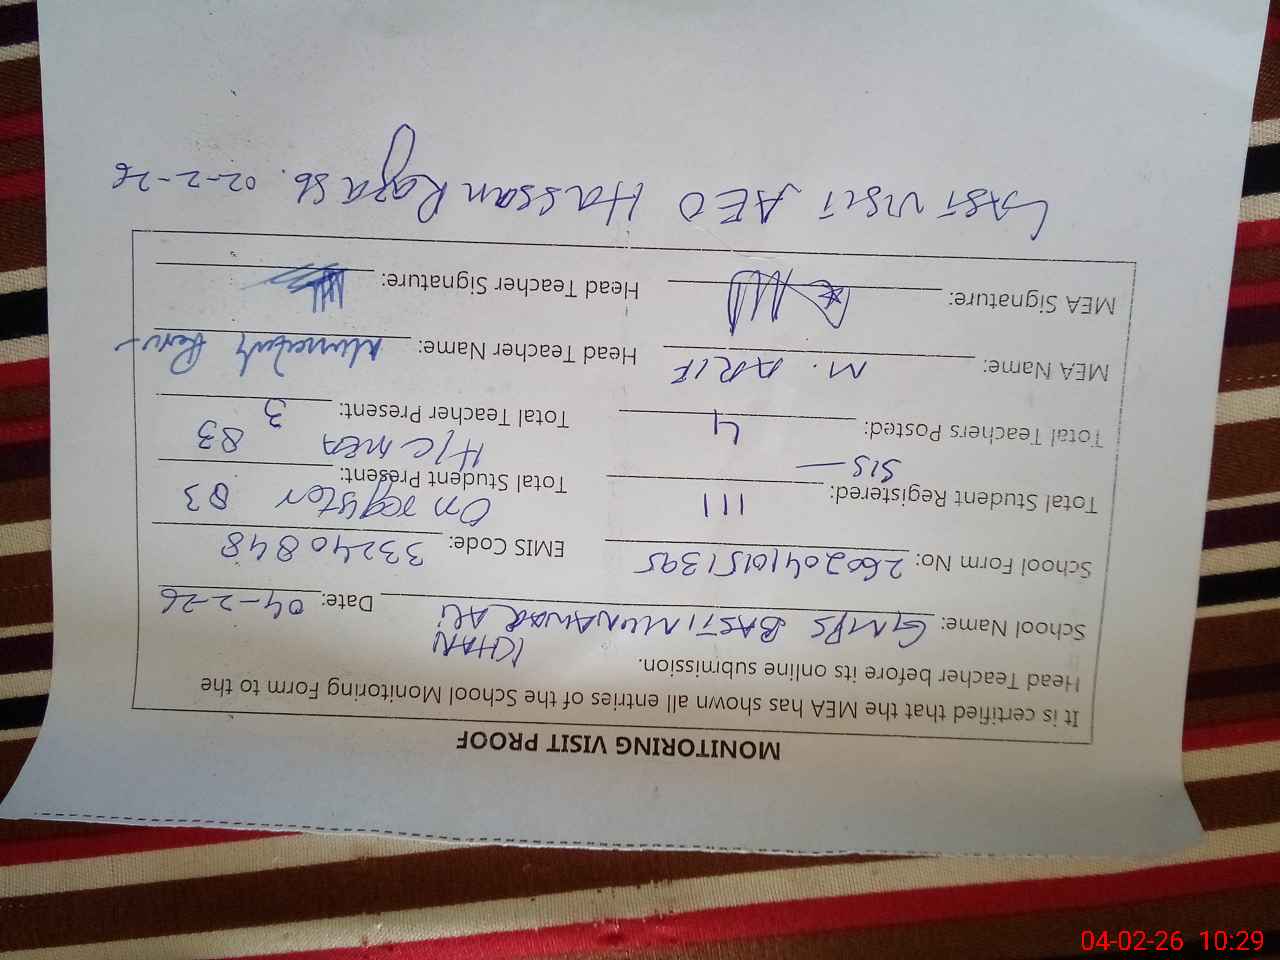 MONITORING VISIT PROOF
It is certified that the MEA has shown all entries of the School Monitoring Form to the
Head Teacher before its online submission.
KHAN
School Name: GMPS BASTI MUNAWAR ALI Date: 04-2-26
School Form No: 26020410151395 EMIS Code: 33240848
Total Student Registered: 111 Total Student Present: On register 83
SIS — H/C MEA 83
Total Teachers Posted: 4 Total Teacher Present: 3
MEA Name: M. ARIF Head Teacher Name:
MEA Signature: Head Teacher Signature:
LAST VISIT AEO Hassan Raza Sb. 02-2-26
04-02-26 10:29